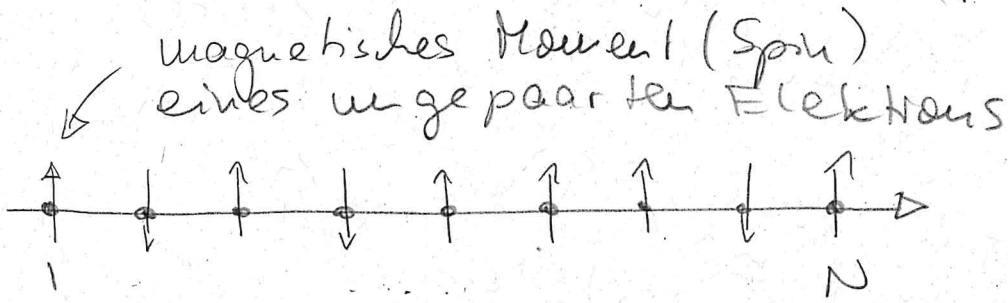 magnetisches Moment (Spin)
eines ungepaarten Elektrons
1 ..... N